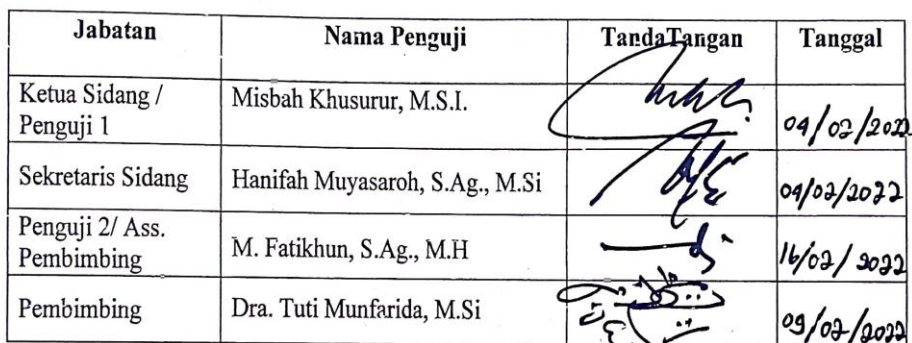 Jabatan Nama Penguji TandaTangan Tanggal
Ketua Sidang / Misbah Khusurur, M.S.I.
Penguji 1 04/02/2022
Sekretaris Sidang Hanifah Muyasaroh, S.Ag., M.Si 04/02/2022
Penguji 2/ Ass.
Pembimbing M. Fatikhun, S.Ag., M.H 16/02/2022
Pembimbing Dra. Tuti Munfarida, M.Si 09/02/2022